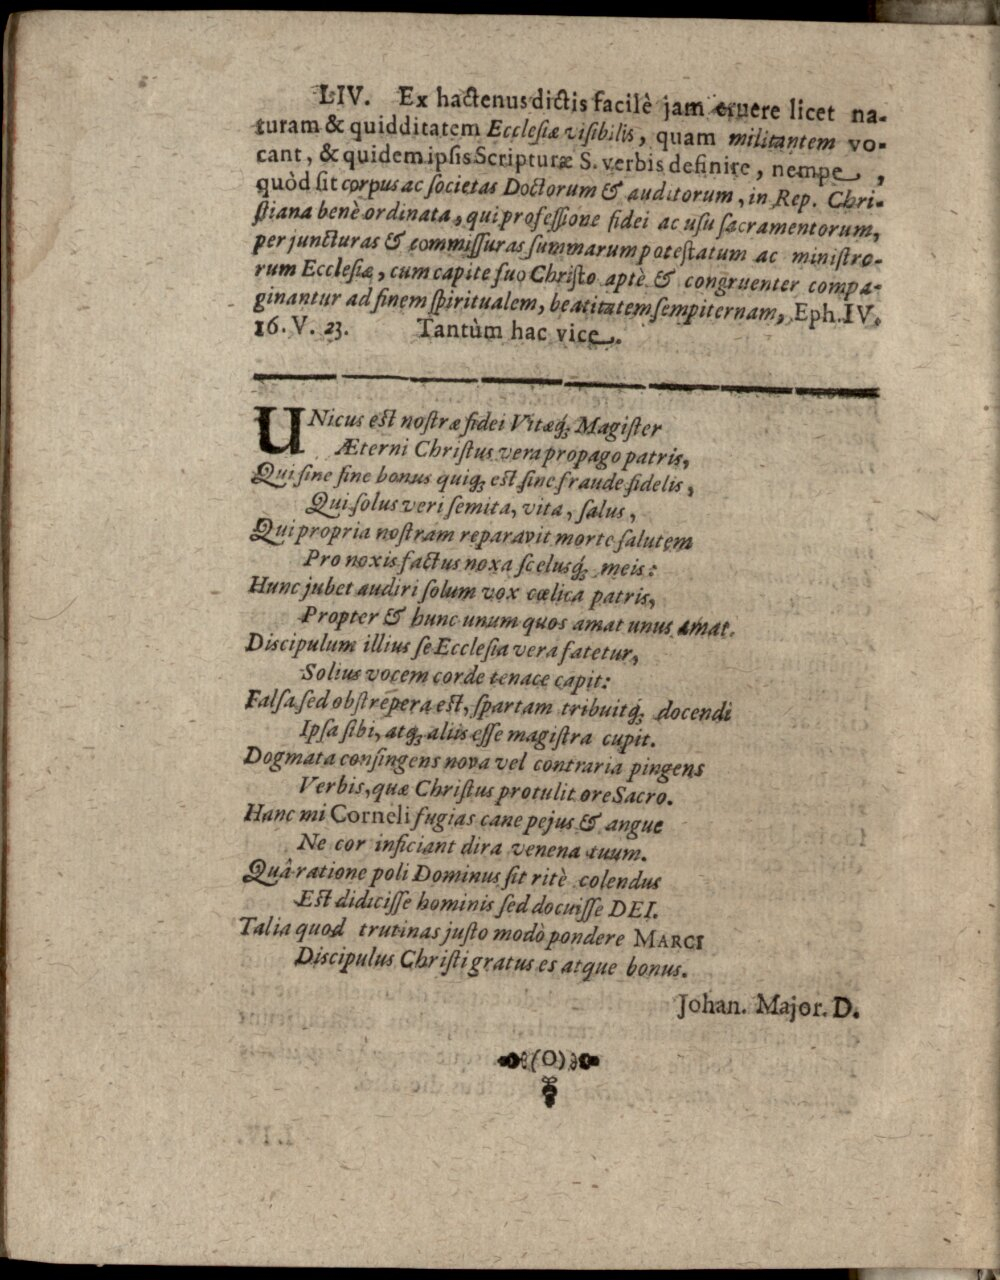 LIV. Ex hactenus dictis facilè jam eruere licet na-
turam & quidditatem Ecclesiæ visibilis, quam militantem vo-
cant, & quidem ipsis Scripturæ S. verbis definire, nempe,
quòd sit corpus ac societas Doctorum & auditorum, in Rep. Chri-
stiana benè ordinata, qui professione fidei ac usu sacramentorum,
per juncturas & commissuras summarum potestatum ac ministro-
rum Ecclesiæ, cum capite suo Christo aptè & congruenter compa-
ginantur ad finem spiritualem, beatitatem sempiternam, Eph. IV.
16. V. 23. Tantùm hac vice.
UNicus est nostræ fidei Vitæq; Magister
Æterni Christus vera propago patris,
Qui sine fine bonus quiq; est sine fraude fidelis,
Qui solus veri semita, vita, salus,
Qui propria nostram reparavit morte salutem
Pro noxis factus noxa scelusq; meis:
Hunc jubet audiri solum vox cœlica patris,
Propter & hunc unum quos amat unus amat.
Discipulum illius se Ecclesia vera fatetur,
Solius vocem corde tenace capit:
Falsa sed obstrepera est, spartam tribuitq; docendi
Ipsa sibi, atq; aliis esse magistra cupit.
Dogmata confingens nova vel contraria pingens
Verbis, quæ Christus protulit ore Sacro.
Hanc mi Corneli fugias cane pejus & angue
Ne cor inficiant dira venena tuum.
Quâ ratione poli Dominus sit ritè colendus
Est didicisse hominis sed docuisse DEI.
Talia quod trutinas justo modò pondere MARCI
Discipulus Christi gratus es atque bonus.
Johan. Major. D.
(0)